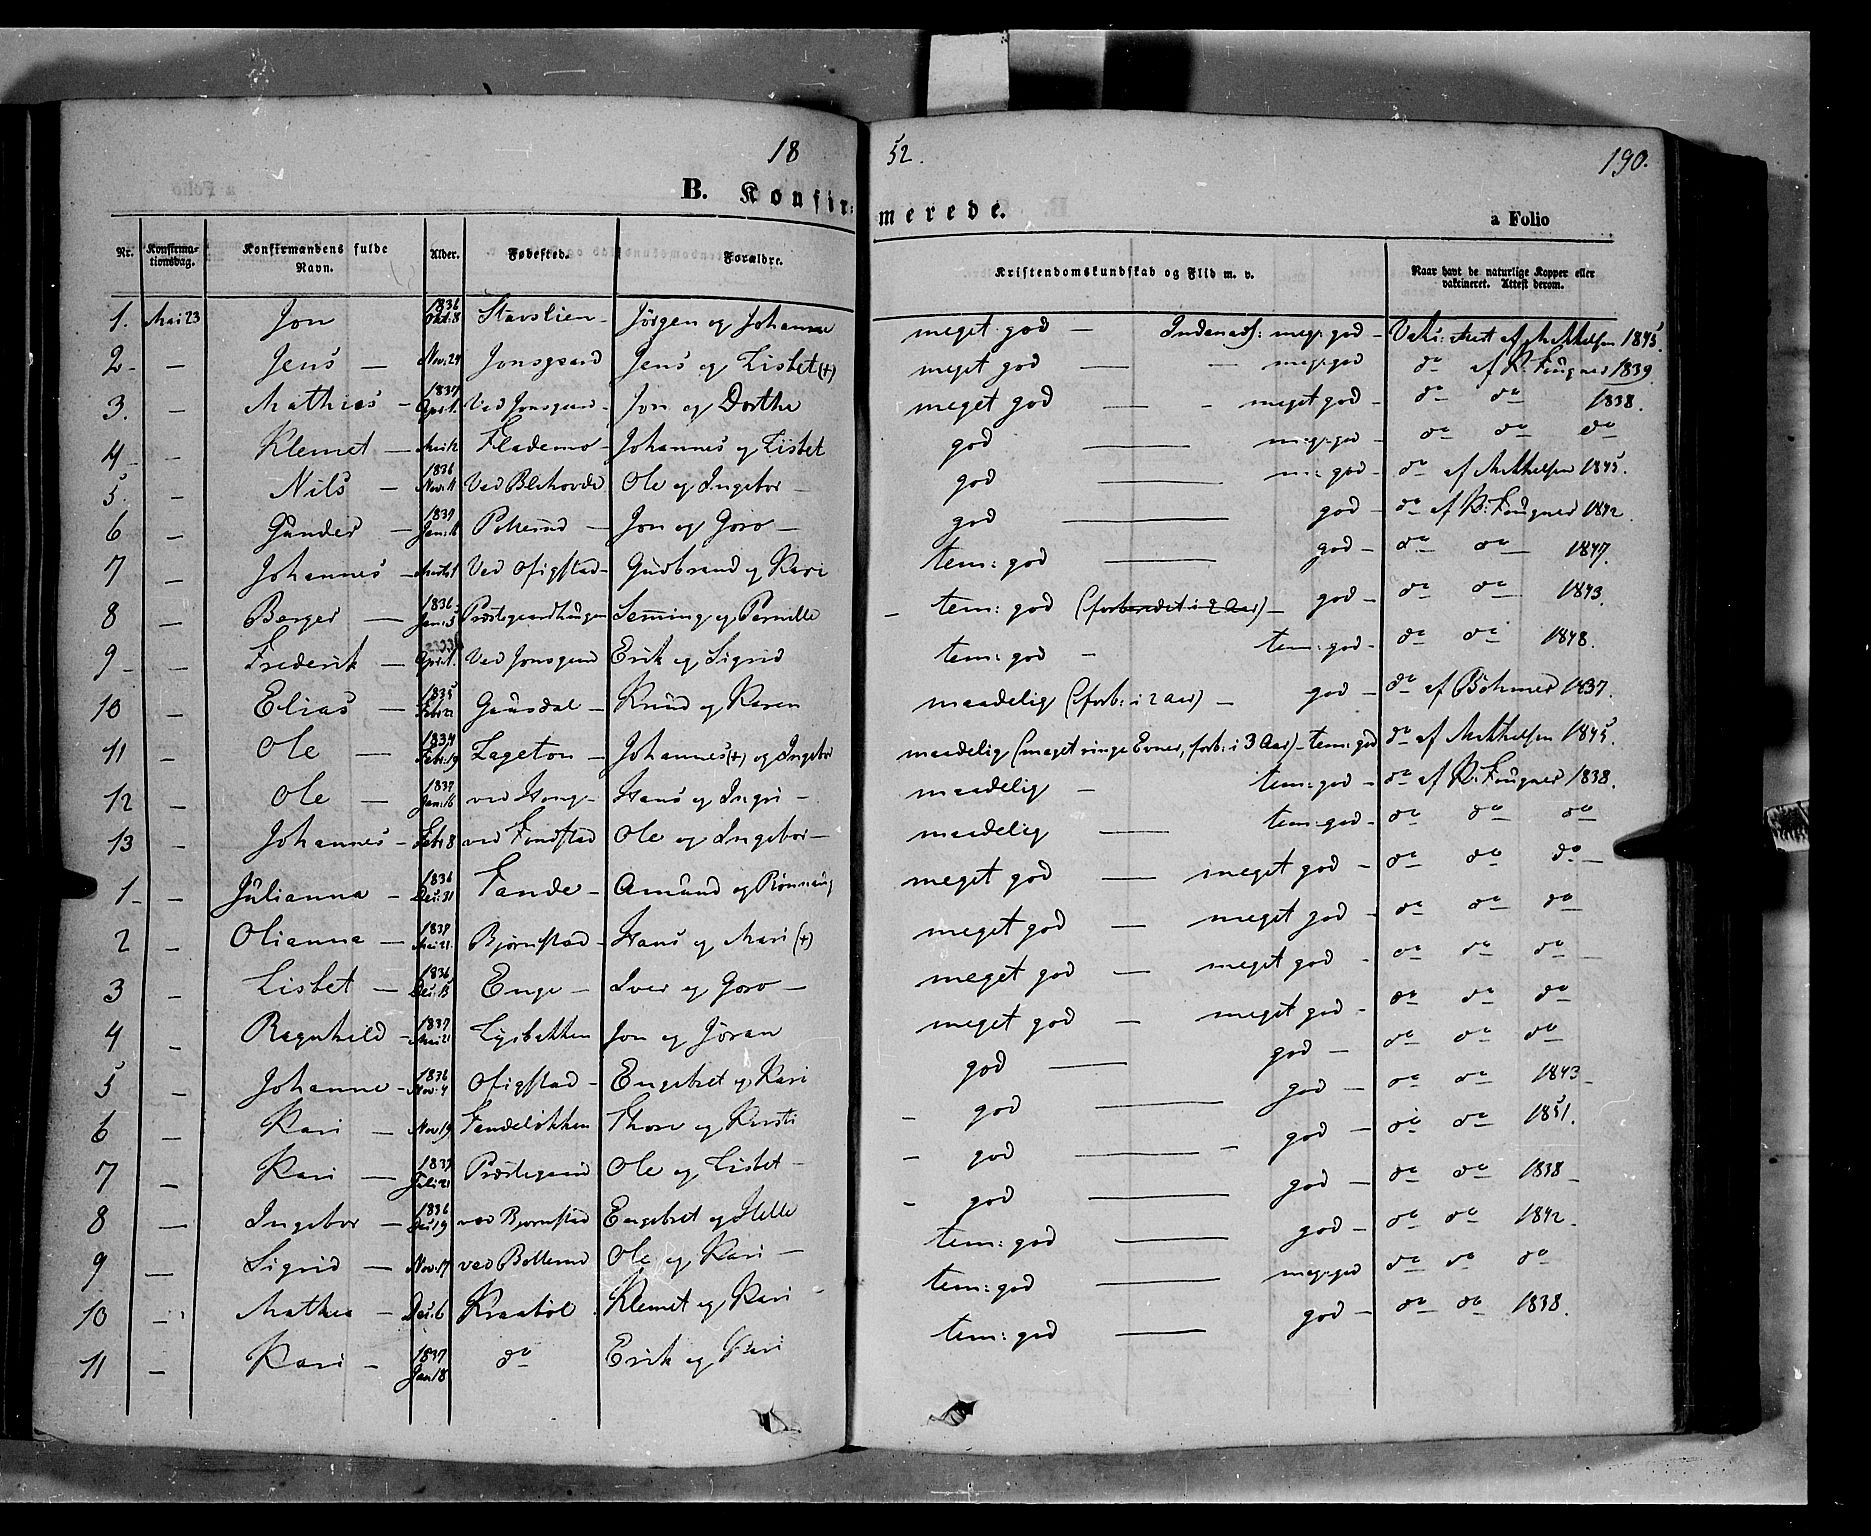 18 52. 190.
B. Konfir= merede. a Folio
Nr. Konfirma-tionsdag. Konfirmandens fulde Navn. Alder. Fødested. Forældre. Kristendomskundskab og Flid m. v. Naar havt de naturlige Kopper eller vaktineret. Attest derom.
1. Mai 23 Jon 1836 Okt: 8 Stavslien - Jørgen og Johanne meget god — meg: god - Vaks: Attest af Mikkelsen 1845.
2 - - Jens — Nov: 24 Jonsgaard Jens og Lisbet (+) meget god — — meg: god do af R: Fougner 1839
3. - Mathias - 1837 April 1 Ved Jonsgaard - Jon og Dorthe meget god — - meget god - do do 1838.
4 - Klemet - Mai 12 Flademo - Johannes og Lisbet god — meg: god - do do do
5. - Nils - 1836 Nov: 11 Ved Blekovde Ole og Ingebor - god — m: god - do af Mikkelsen 1845.
6 - Gunder - 1837 Jan: Jon og Goro — god — god - do af R: Fougner 1842.
7 - Johannes - Ved Ofigstad - Gudbrand og Kari tem: god — god - do do 1847.
8 - Berger — 1836 Jan: 5 Semming og Pernille - tem: god (forberedet i 2 Aar) - god - do do 1843.
9 - Frederik — April Ved Jonsgaard Erik og Sigrid tem: god - tem: god - do do 1848.
10 - Elias - 1835 Febr: 22 Gausdal - Knud og Karen maadelig (forb: i 2 aar) - god - do af Bøhmer 1837.
11 - Ole — 1834 Febr: 19 Lageton - Johannes (+) og Ingebor maadelig (meget ringe Evner, forb: i 3 Aar) - tem: god do af Mikkelsen 1845.
12 - Ole — 1837 Jan: 16 ved Haug - Hans og Ingri - maadelig - tem: god - do af R: Fougner 1838.
13 - Johannes - Febr 8 ved Fondstad Ole og Ingebor - maadelig — tem: god - do do do
1 - - Julianna - 1836 Dec: 31 Fande - Amund og Rønnaug meget god — meget god - do do do -
2 - Olianna - 1837 Mai 21. Bjørnstad - Hans og Mari (+) meget god — meget god - do do do
3 - Lisbet - 1836 Dec: 13 Enge - Iver og Goro - meget god — meget god - do do do -
4 - Ragnhild - 1837 Mai 21 Lysbakken Jon og Jøran meget god — meget god - do do do
5 - Johanne - 1836 Nov: 4 Ofigstad - Engebret og Kari god — god - do do do
6 - Kari - Nov 19 Fandeløkken Thore og Kirsti - god — god - do do 1843 -
7 - Kari — 1837 Juli: 21 Præstegaard Ole og Lisbet - - god — - god - do do 1851.
8 - Ingebor - 1836 Dec: 19 ved Bjørnstad Engebret og Helle - god — god - do do 1838 -
9 - Sigrid - Nov: 17 ved Bolterud Ole og Kari - tem: god — god - do do 1842 -
10 - Mathea - Dec: 6 Kraabøl - Klemet og Kari - tem: god — meg: god do do do
11 - Kari - 1837 Jan 18 do Erik og Kari tem: god — god - do do 1838.